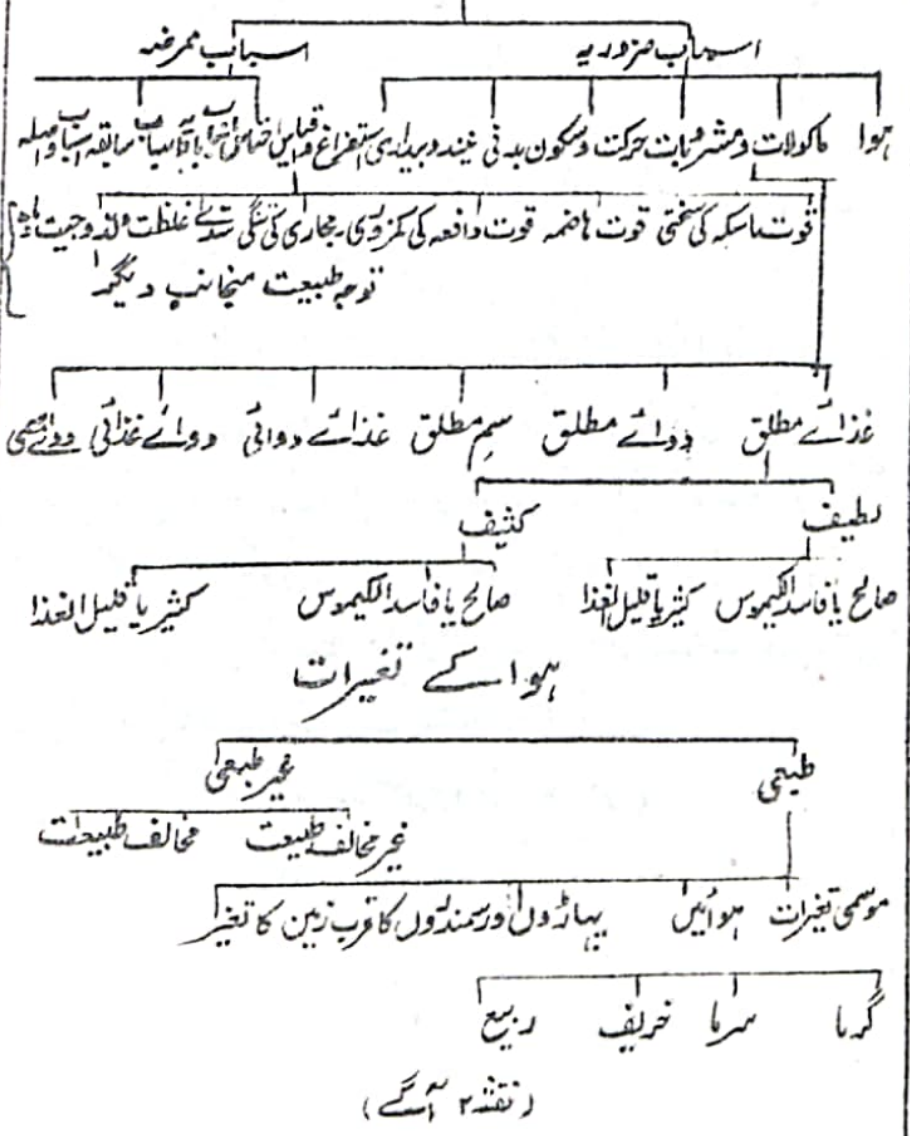 اسباب ضروریہ اسباب ممرضہ
ہوا ماکولات و مشروبات حرکت و سکون بدنی نیند و بیداری استفراغ و احتباس اسباب بادیہ اسباب سابقہ اسباب واصلہ
قوت ماسکہ کی سختی قوت ہاضمہ قوت دافعہ کی کمزوری مجاری کی تنگی سدے غلظت و لزوجیت مادہ
توجہ طبیعت منجانب دیگر
غذائے مطلق دوائے مطلق سم مطلق غذائے دوائی دوائے غذائی دوائے سمی
لطیف کثیف
صالح یا فاسد الکیموس کثیر یا قلیل الغذا صالح یا فاسد الکیموس کثیر یا قلیل الغذا
ہوا کے تغیرات
طبعی غیر طبعی
غیر مخالف طبیعت مخالف طبیعت
موسمی تغیرات ہوائیں پہاڑوں اور سمندروں کا قرب زمین کا تغیر
گرما سرما خریف ربیع
(نقشہ ۲ آگے)